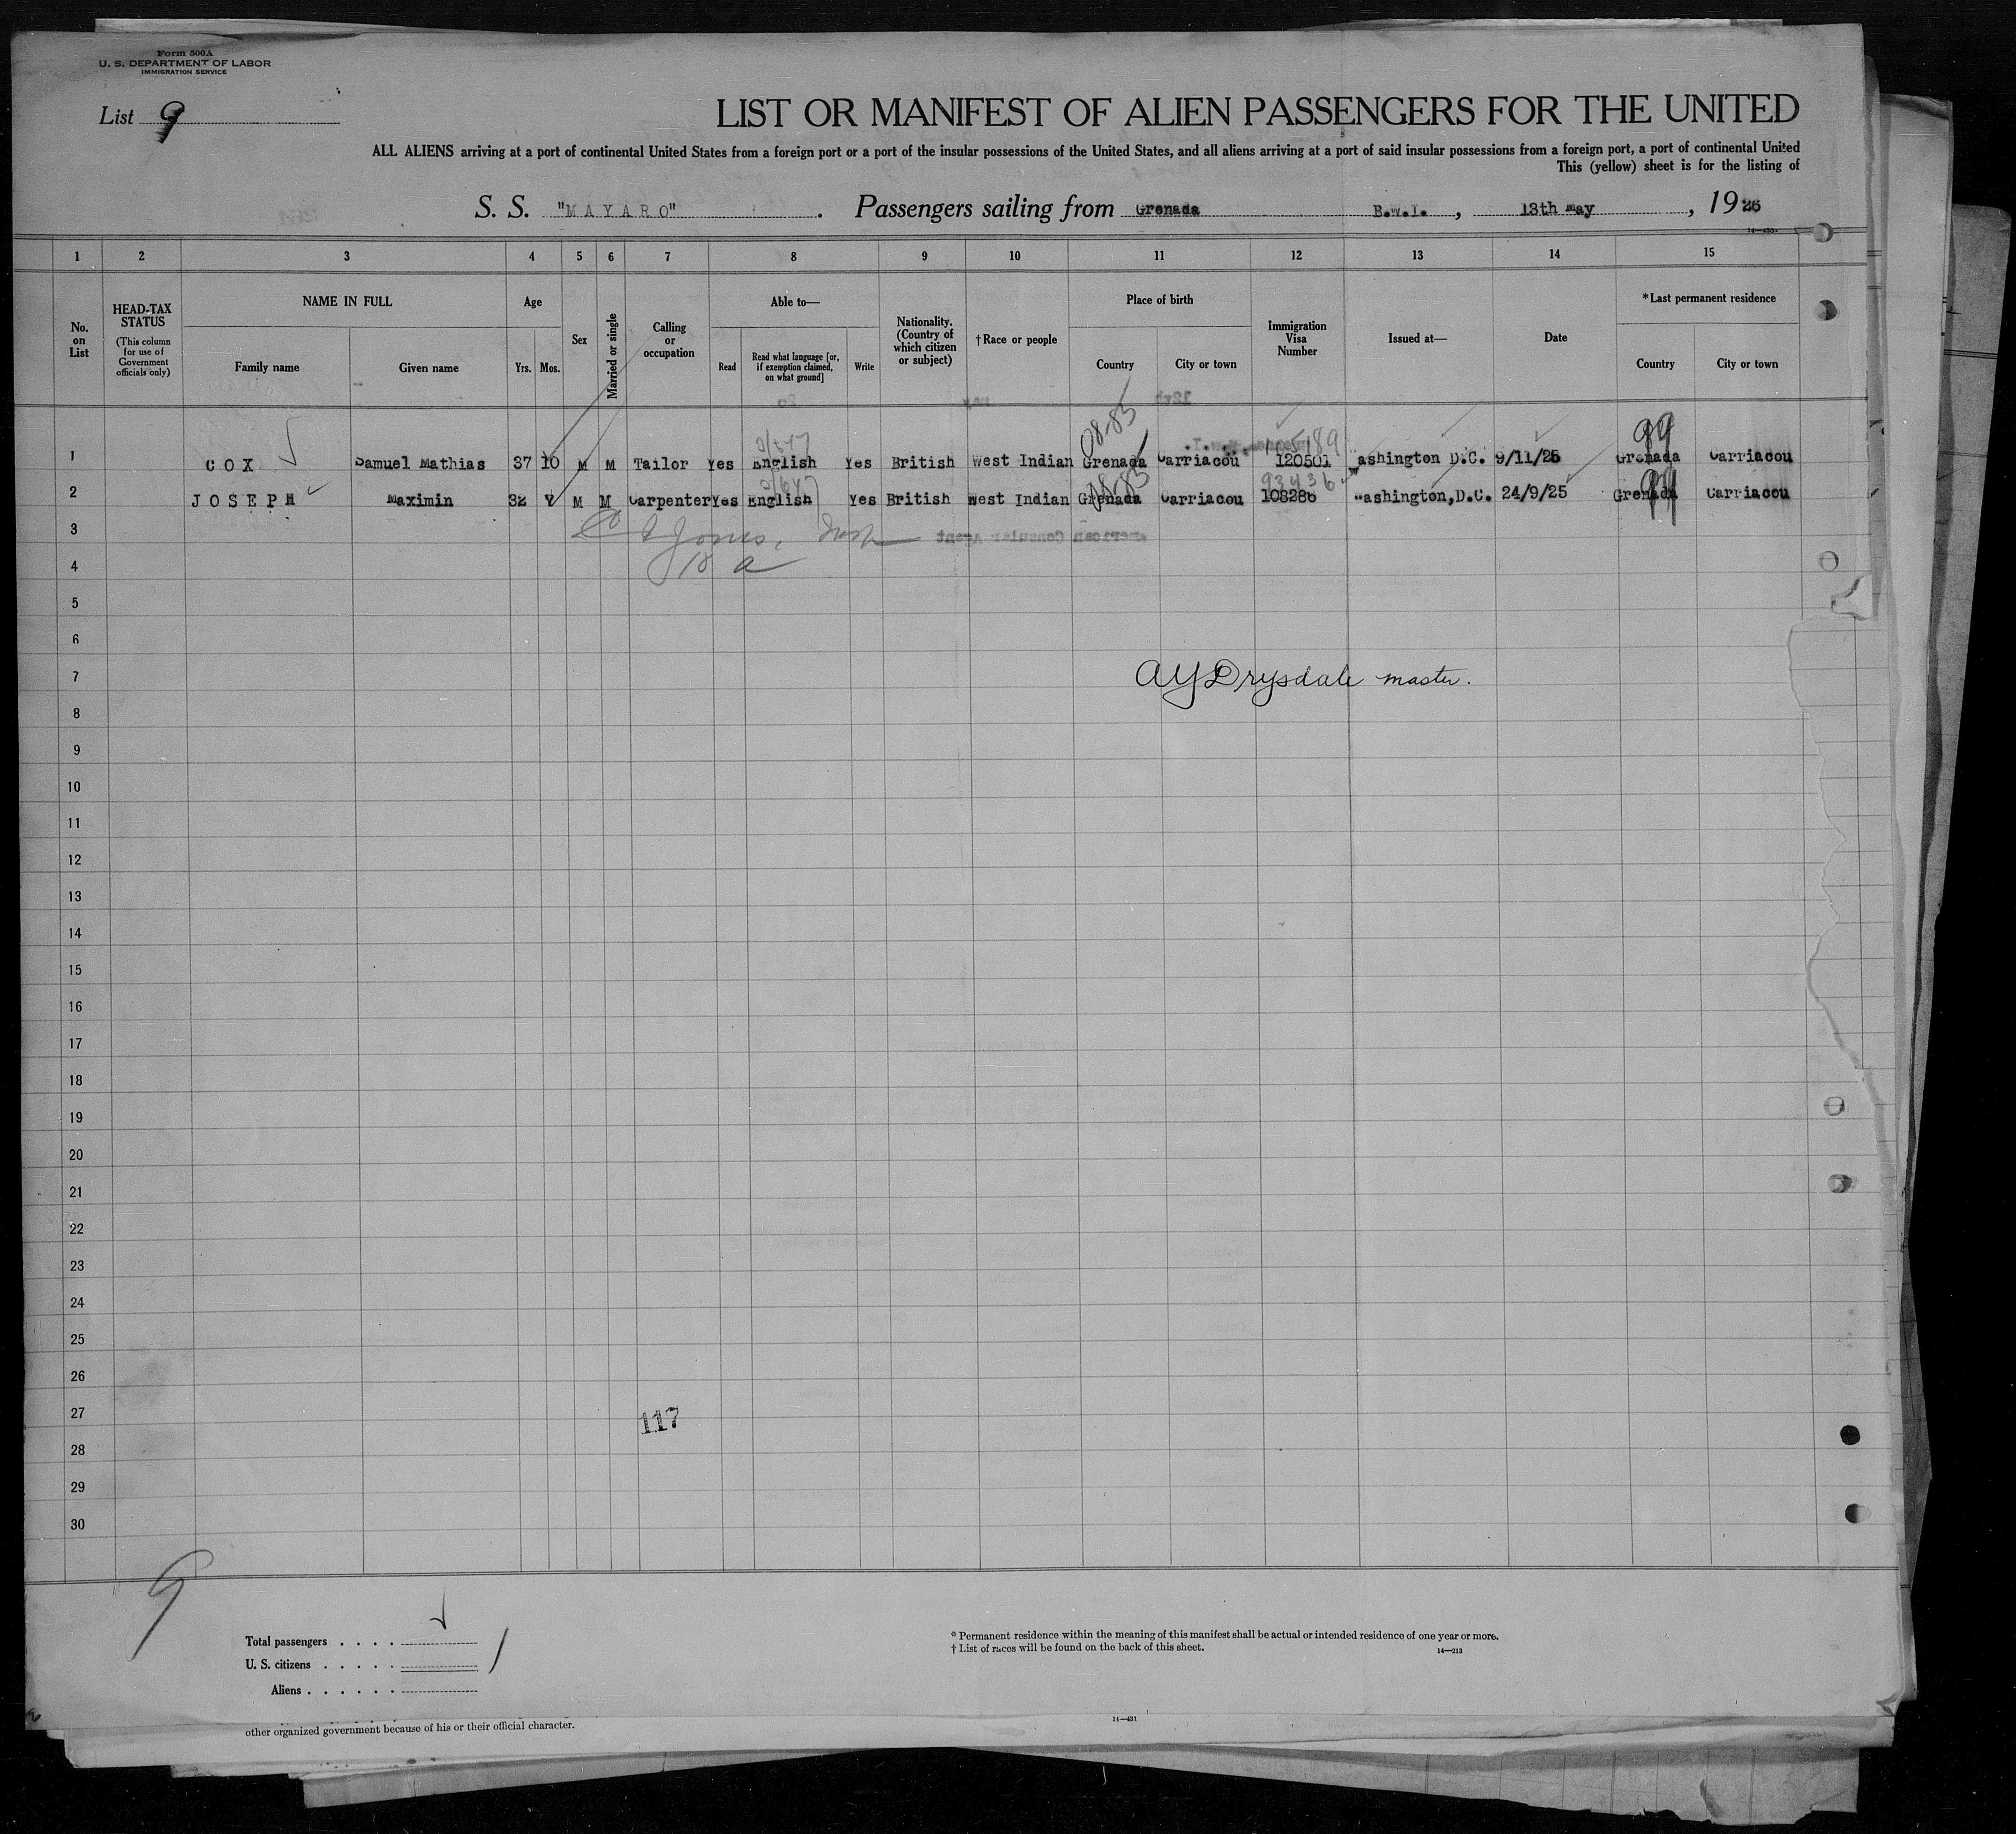 Form 500A
U. S. DEPARTMENT OF LABOR
IMMIGRATION SERVICE
List 9
LIST OR MANIFEST OF ALIEN PASSENGERS FOR THE UNITED
ALL ALIENS arriving at a port of continental United States from a foreign port or a port of the insular possessions of the United States, and all aliens arriving at a port of said insular possessions from a foreign port, a port of continental United
This (yellow) sheet is for the listing of
S. S. "MAYARO". Passengers sailing from Grenada B.W.I., 13th May, 1926
1 2 3 4 5 6 7 8 9 10 11 12 13 14 15
No. on List
HEAD-TAX STATUS
(This column for use of Government officials only)
NAME IN FULL
Family name
Given name
Age
Yrs. Mos.
Sex
Married or single
Calling or occupation
Able to—
Read
Read what language [or, if exemption claimed, on what ground]
Write
Nationality. (Country of which citizen or subject)
†Race or people
Place of birth
Country
City or town
Immigration Visa Number
Issued at—
Date
*Last permanent residence
Country
City or town
1 COX Samuel Mathias 37 10 M M Tailor Yes English Yes British West Indian Grenada Carriacou 120501 Washington D.C. 9/11/25 Grenada Carriacou
2 JOSEPH Maximin 32 M M Carpenter Yes English Yes British West Indian Grenada Carriacou 108286 Washington, D.C. 24/9/25 Grenada Carriacou
99
99
3 Jones, Insp
American Consular Agent
4
5
6
7 AY Drysdale master.
8
9
10
11
12
13
14
15
16
17
18
19
20
21
22
23
24
25
26
27 117
28
29
30
9
Total passengers . . . .
U. S. citizens . . . . .
Aliens . . . . . .
* Permanent residence within the meaning of this manifest shall be actual or intended residence of one year or more.
† List of races will be found on the back of this sheet.
14—213
other organized government because of his or their official character.
14—431